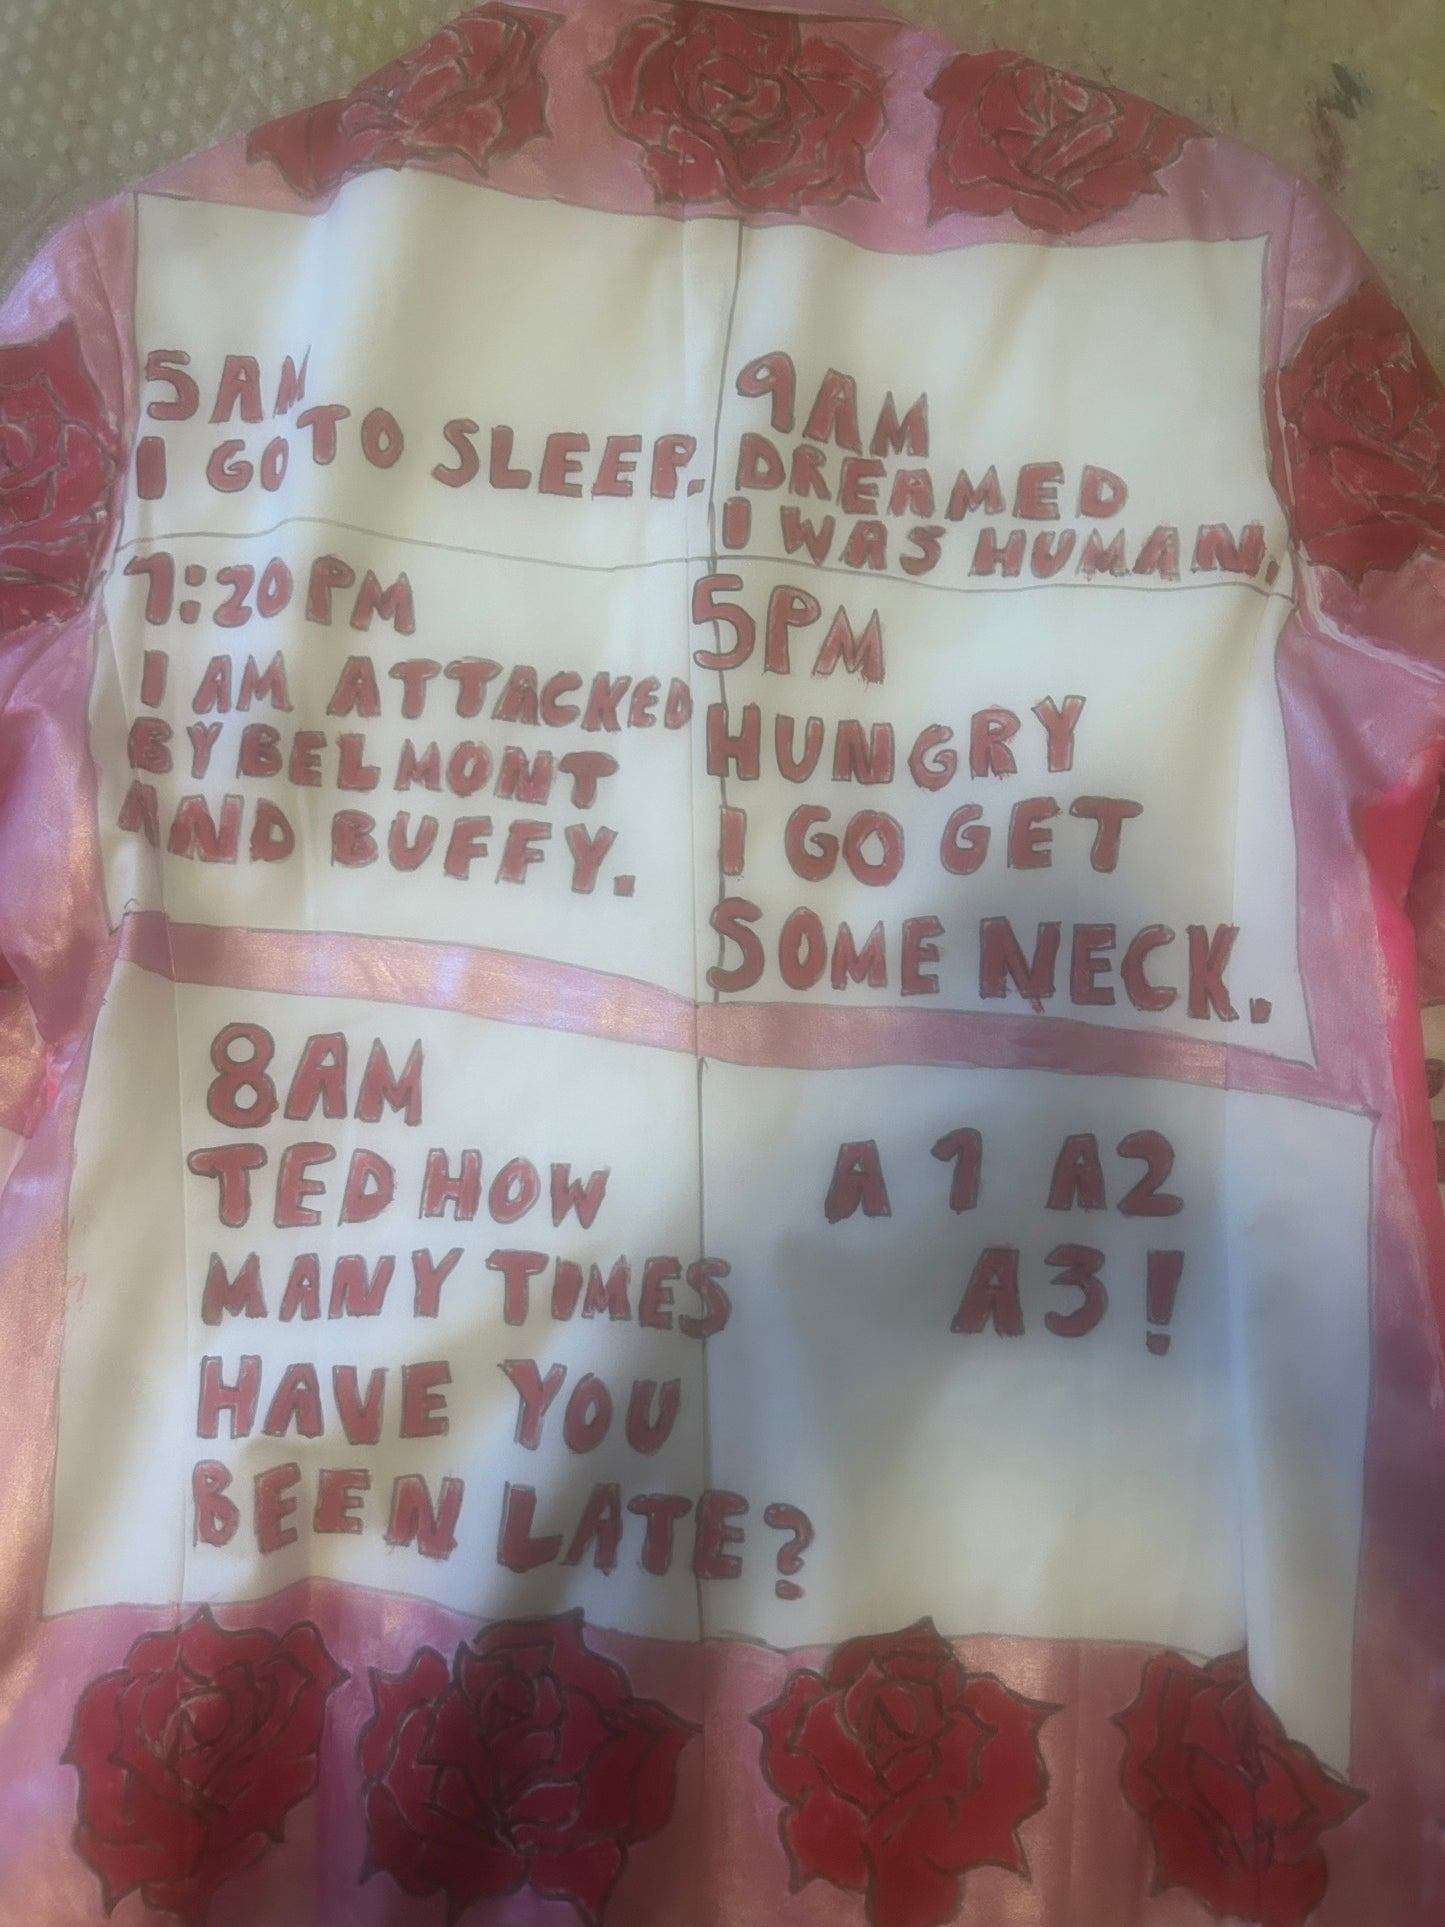 5AM
I GO TO SLEEP.
9AM
DREAMED
I WAS HUMAN.
7:20PM
I AM ATTACKED
BY BELMONT
AND BUFFY.
5PM
HUNGRY
I GO GET
SOME NECK.
8AM
TED HOW
MANY TIMES
HAVE YOU
BEEN LATE?
A1 A2
A3!